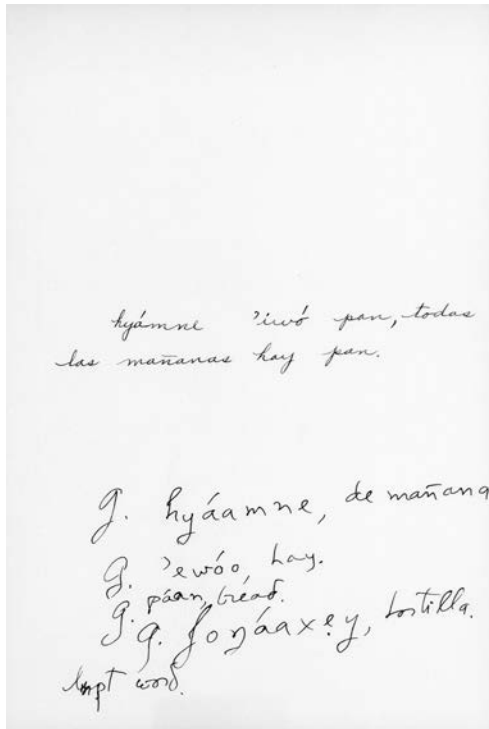 hyámne ’iwó pan, todas
las mañanas hay pan.
G. hyáamne, de mañana
G. ’ewóo, hay.
G. páan, bread.
G. G. foŋáaxẹy, tortilla.
Impt word.